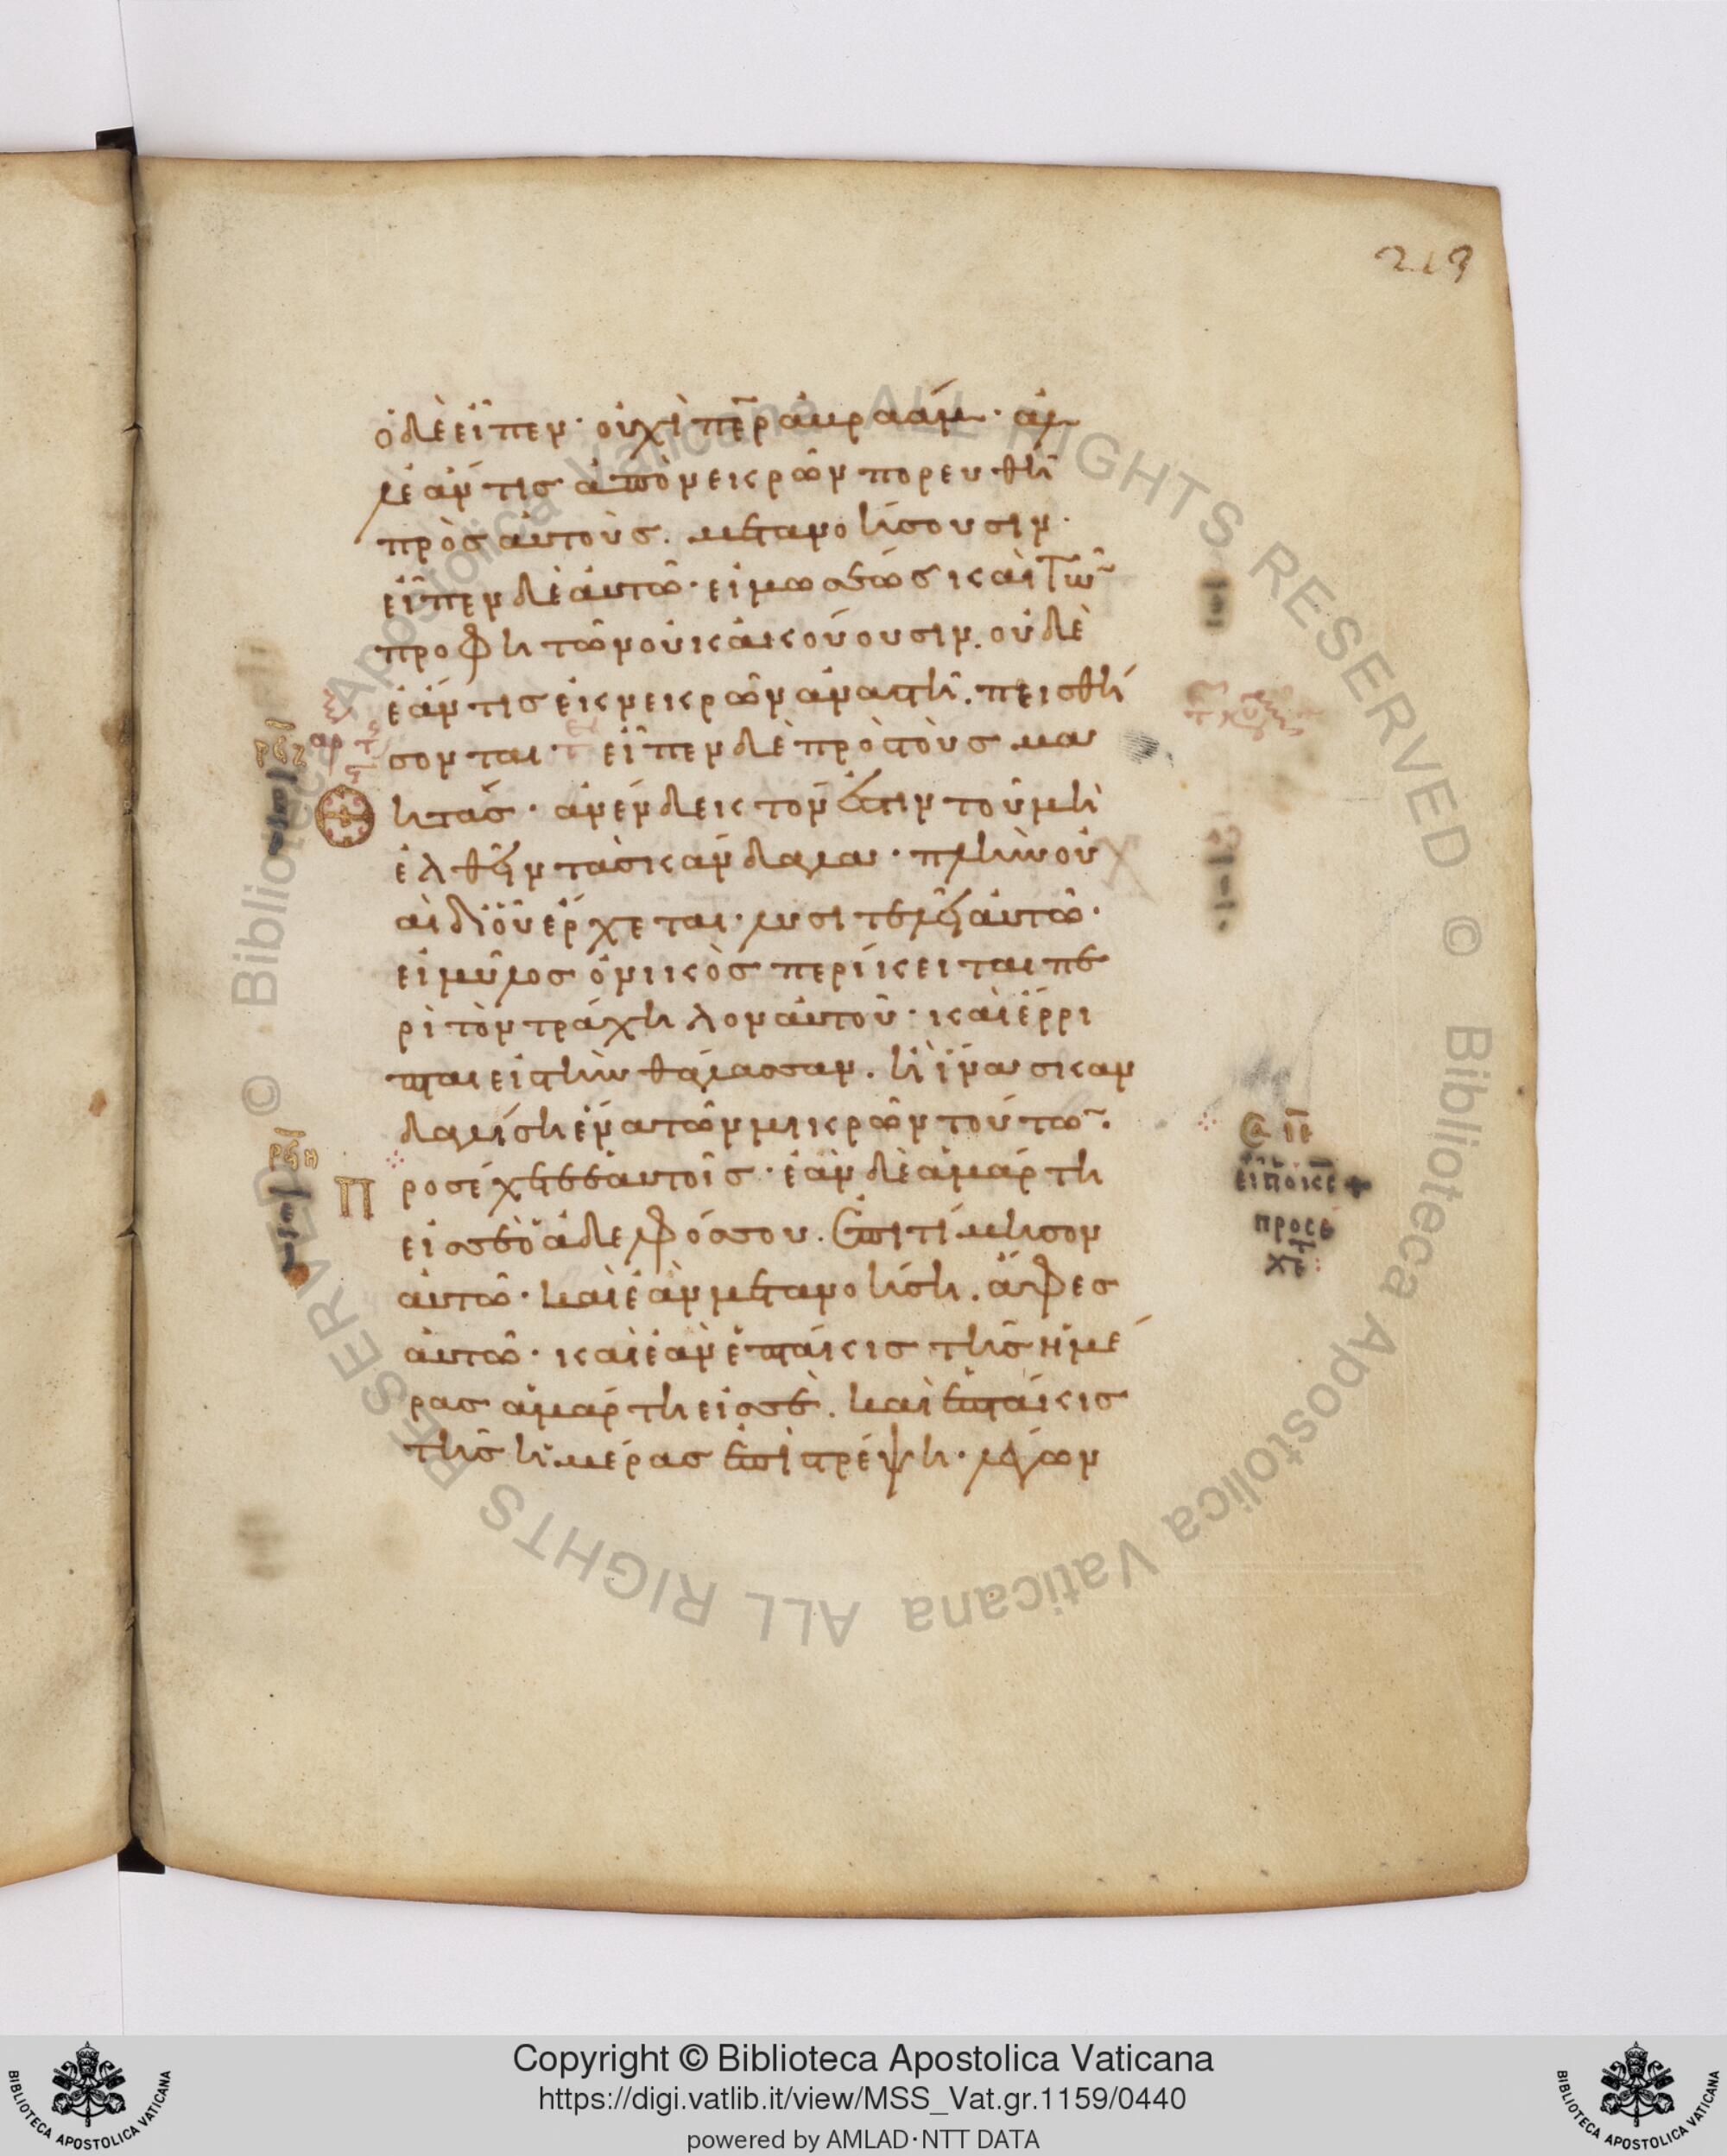 219
ὁ δὲ εἶπεν· οὐχὶ πε̅ρ ἀβραάμ· ἀλ
λ' ἐάν τις ἀπὸ νεκρῶν πορευθῆ
πρὸς αὐτοὺς. μετανοήσουσιν·
εἶπεν δὲ αὐτῶ· εἰ μωσέως καὶ τῶ̅
προφητῶν οὐκ ἀκούουσιν. οὐδὲ
ἐάν τις ἐκ νεκρῶν ἀναστῆ. πεισθή
σονται· εἶπεν δὲ πρὸς τοὺς μα
θητάς· ἀνένδεκτόν ἐστιν τοῦ μὴ
ἐλθεῖν τὰ σκάνδαλα· πλὴν οὐ
αὶ δι' οὗ ἔρχεται· λυσιτελεῖ αὐτῶ·
εἰ μῦλος ὀνικὸς περίκειται πε
ρὶ τὸν τράχηλον αὐτοῦ· καὶ ἔρρι
πται εἰς τὴν θάλασσαν. ἢ ἵνα σκαν
δαλίση ἕνα τῶν μικρῶν τούτω̅·
Προσέχετε ἑαυτοῖς· ἐὰν δὲ ἁμάρτη
εἰς σὲ ὁ ἀδελφός σου. ἐπιτίμησον
αὐτῶ· καὶ ἐὰν μετανοήση. ἄφες
αὐτῶ· καὶ ἐὰν ἑπτάκις τῆς ἡμέ
ρας ἁμάρτη εἰς σὲ. καὶ ἑπτάκις
τῆς ἡμέρας ἐπιστρέψη· λέγων
εἰπ ο κς
προσέ
χετ
Copyright © Biblioteca Apostolica Vaticana
https://digi.vatlib.it/view/MSS_Vat.gr.1159/0440
powered by AMLAD·NTT DATA
BIBLIOTECA APOSTOLICA VATICANA
BIBLIOTECA APOSTOLICA VATICANA
© Biblioteca Apostolica Vaticana ALL RIGHTS RESERVED © Biblioteca Apostolica Vaticana ALL RIGHTS RESERVED